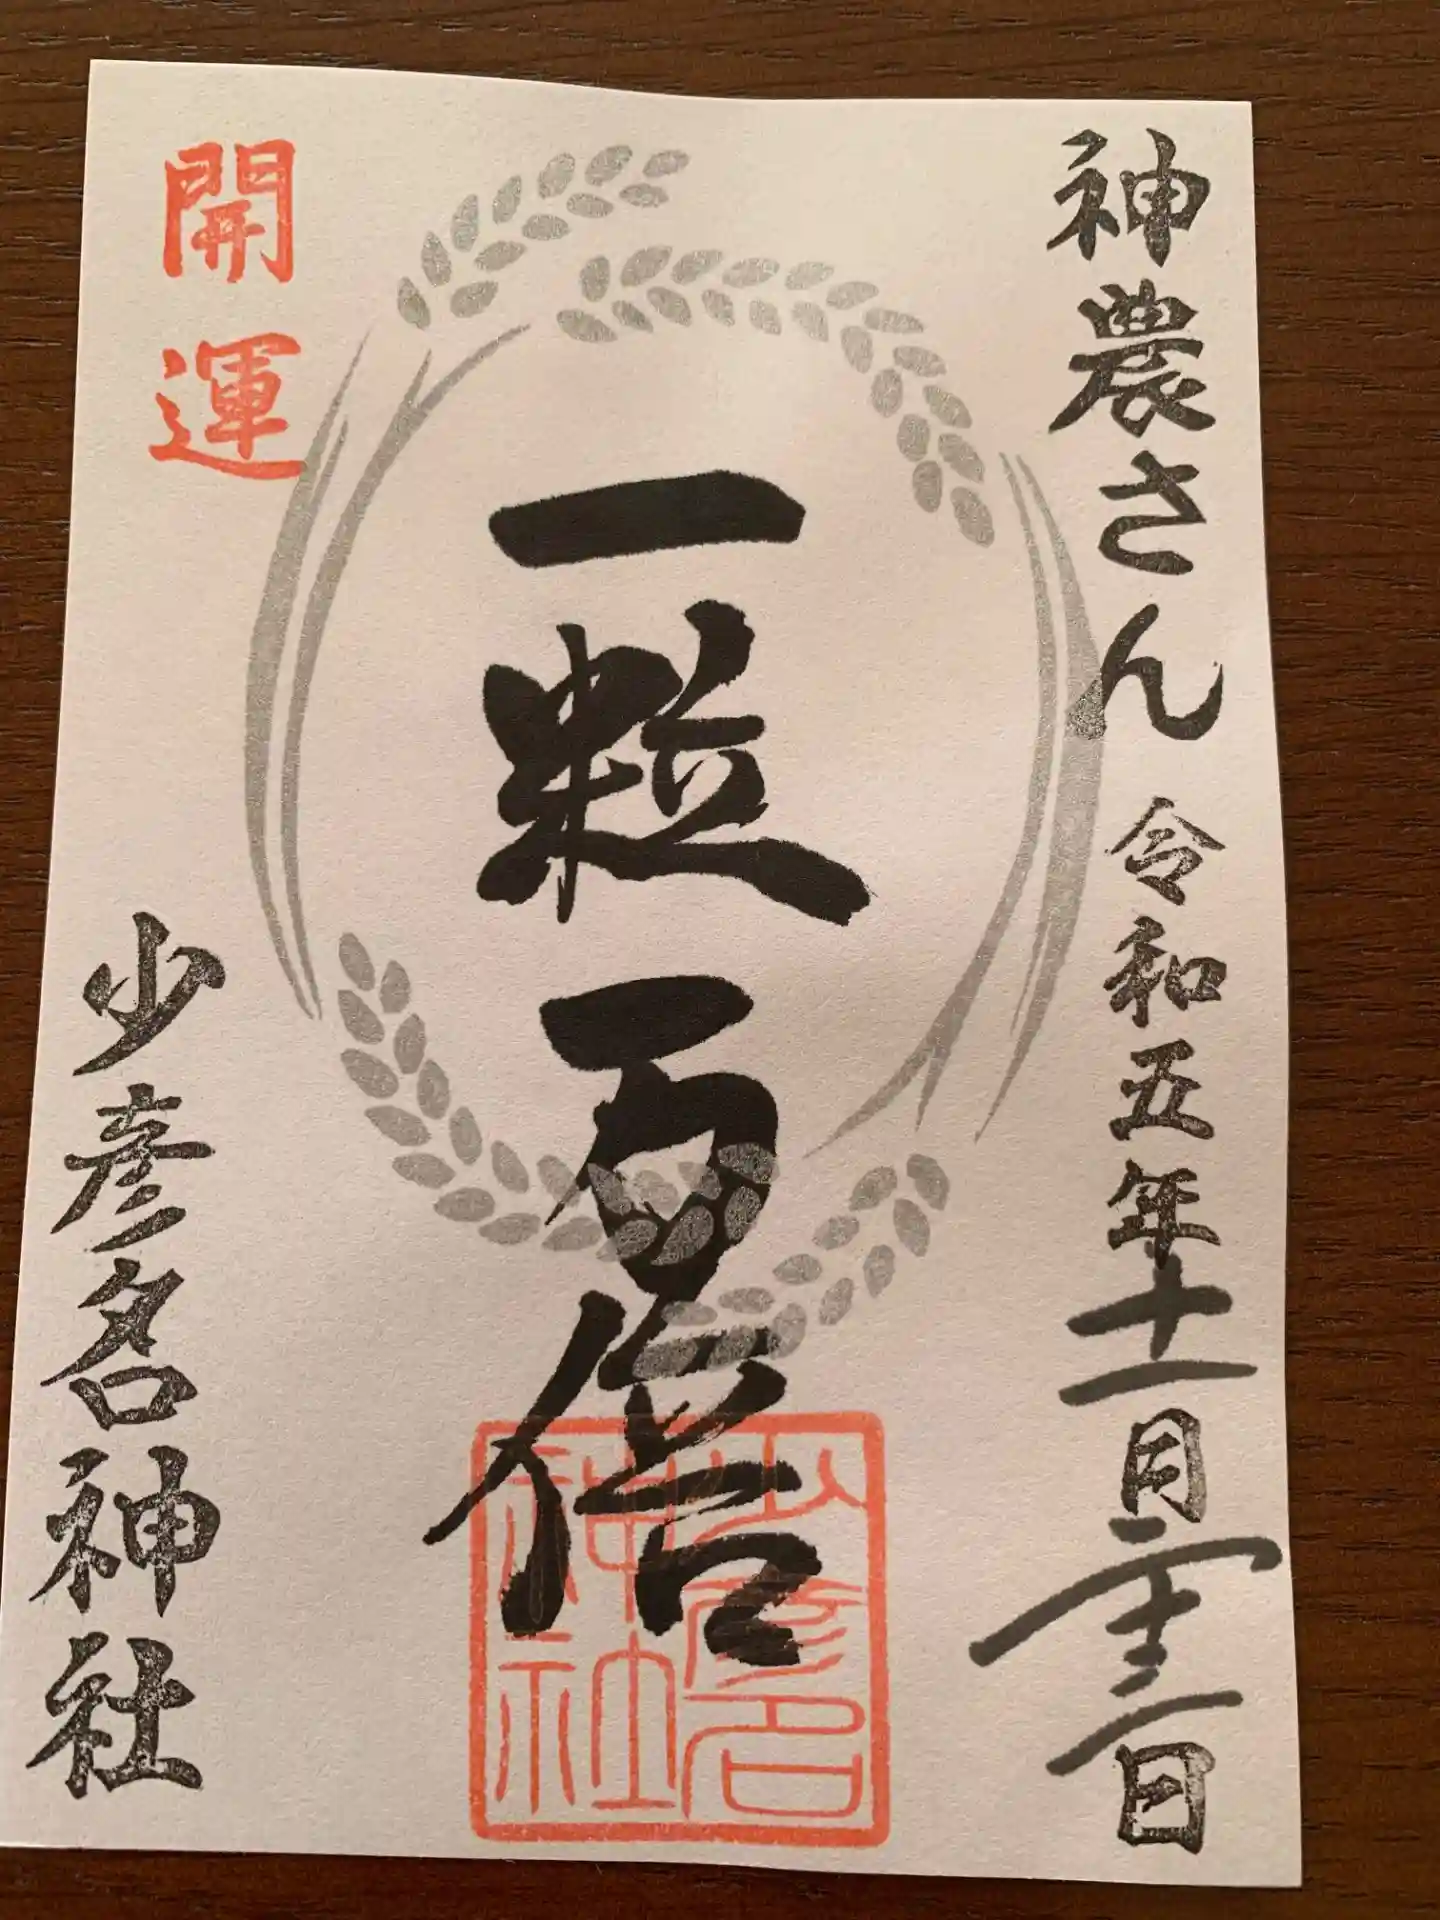 神農さん 令和五年十一月二十三日
一粒百倍
開運
少彦名神社
少彦名神社